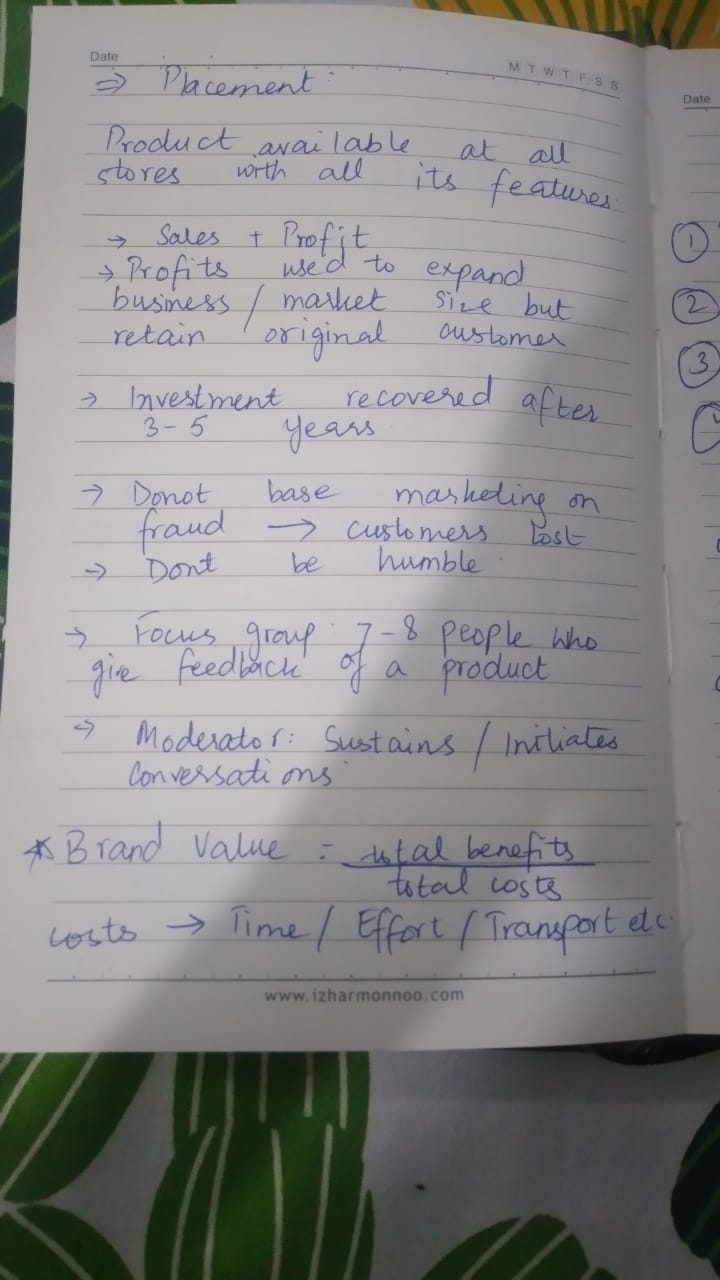 Date
M T W T F S S
⇒ Placement:
Product available at all
stores with all its features.
→ Sales + Profit
→ Profits used to expand
business / market size but
retain original customer
→ Investment recovered after
3-5 years
→ Donot base marketing on
fraud → customers lost
→ Dont be humble.
→ Focus group: 7-8 people who
give feedback of a product
→ Moderator: Sustains / Initiates
Conversations
* Brand Value = total benefits
total costs
costs → Time / Effort / Transport etc.
www.izharmonnoo.com
Date
1
2
3